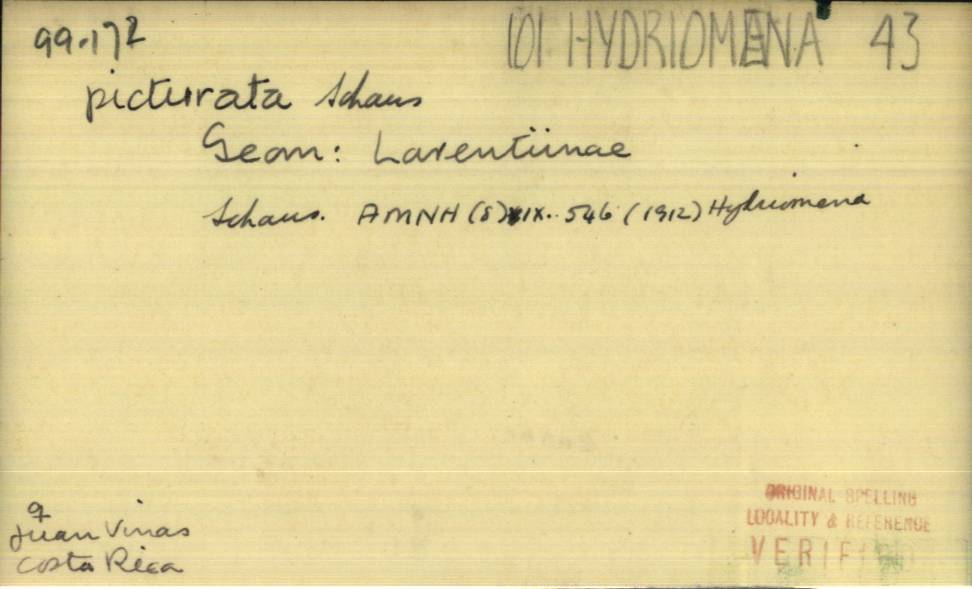 99.172
101 HYDRIOMENA 43
picturata Schaus
Geom: Larentiinae
Schaus. AMNH (8) IX. 546 (1912) Hydriomena
♀
Juan Vinas
Costa Rica
ORIGINAL SPELLING
LOCALITY & REFERENCE
VERIFIED